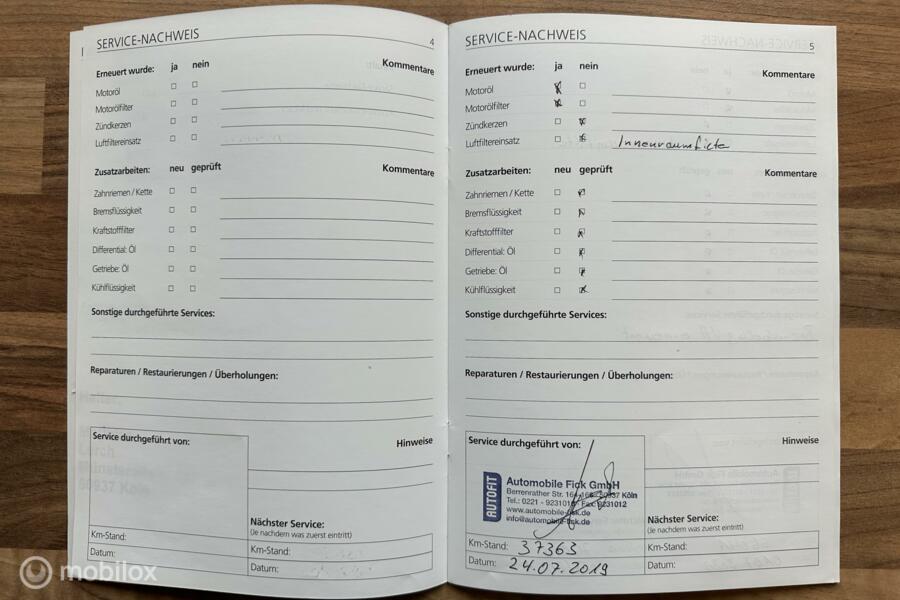 SERVICE-NACHWEIS 4
Erneuert wurde: ja nein Kommentare
Motoröl
Motorölfilter
Zündkerzen
Luftfiltereinsatz
Zusatzarbeiten: neu geprüft Kommentare
Zahnriemen / Kette
Bremsflüssigkeit
Kraftstofffilter
Differential: Öl
Getriebe: Öl
Kühlflüssigkeit
Sonstige durchgeführte Services:
Reparaturen / Restaurierungen / Überholungen:
Service durchgeführt von: Hinweise
Nächster Service:
(Je nachdem was zuerst eintritt)
Km-Stand: Km-Stand:
Datum: Datum:
SERVICE-NACHWEIS 5
Erneuert wurde: ja nein Kommentare
Motoröl
Motorölfilter
Zündkerzen
Luftfiltereinsatz Innenraumfilter
Zusatzarbeiten: neu geprüft Kommentare
Zahnriemen / Kette
Bremsflüssigkeit
Kraftstofffilter
Differential: Öl
Getriebe: Öl
Kühlflüssigkeit
Sonstige durchgeführte Services:
Reparaturen / Restaurierungen / Überholungen:
Service durchgeführt von: Hinweise
AUTOFIT
Automobile Fick GmbH
Berrenrather Str. 164-166 · 50937 Köln
Tel.: 0221 - 9231010 · Fax: 9231012
www.automobile-fick.de
info@automobile-fick.de
Nächster Service:
(Je nachdem was zuerst eintritt)
Km-Stand: 37363 Km-Stand:
Datum: 24.07.2019 Datum:
mobilox